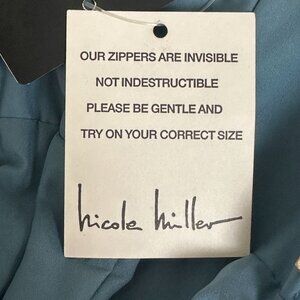 OUR ZIPPERS ARE INVISIBLE
NOT INDESTRUCTIBLE
PLEASE BE GENTLE AND
TRY ON YOUR CORRECT SIZE
nicole miller